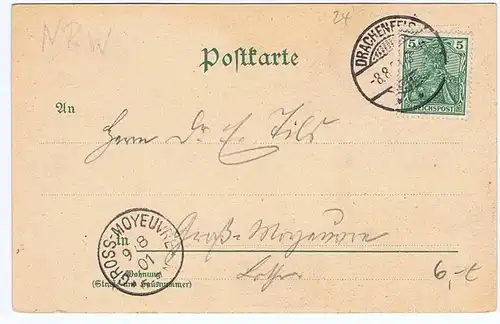 24
NRW
Postkarte
DRACHENFELS
-8.8.
5 5
REICHSPOST
An
Herrn Dr. E. Tils
GROSS-MOYEUVRE
9 8
01
In Groß-Moyeuvre
Wohnung
(Straße und Hausnummer)
Lothr.
6,-